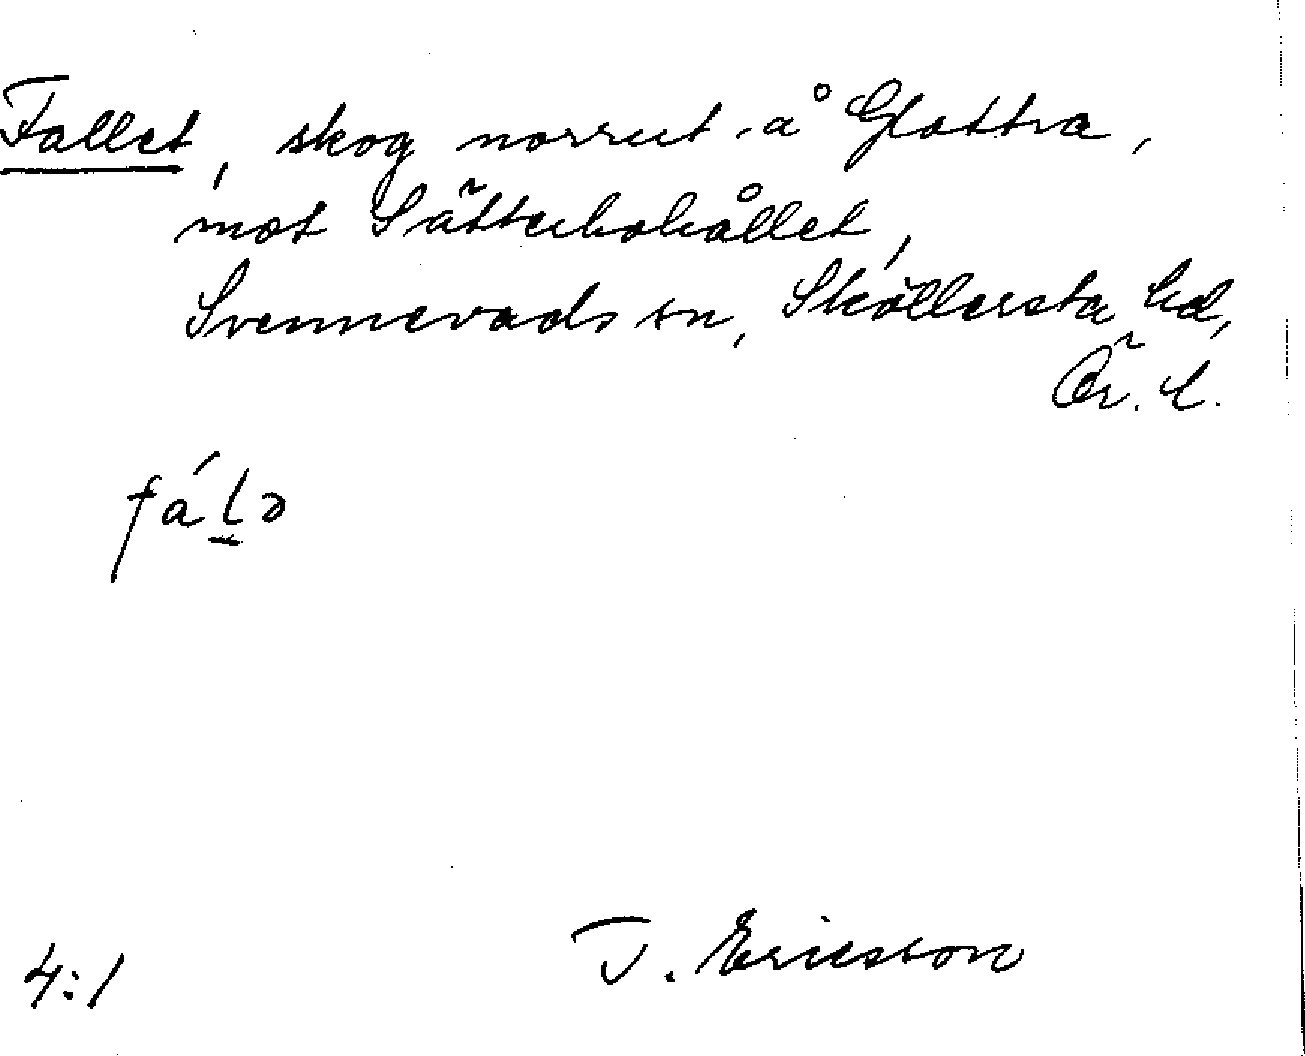 Fallet, skog norrut å Glottra,
mot Sätterbohållet,
Svennevads sn, Sköllersta hd,
Ör. l.
fá l̠ ə
4:1
T. Ericsson